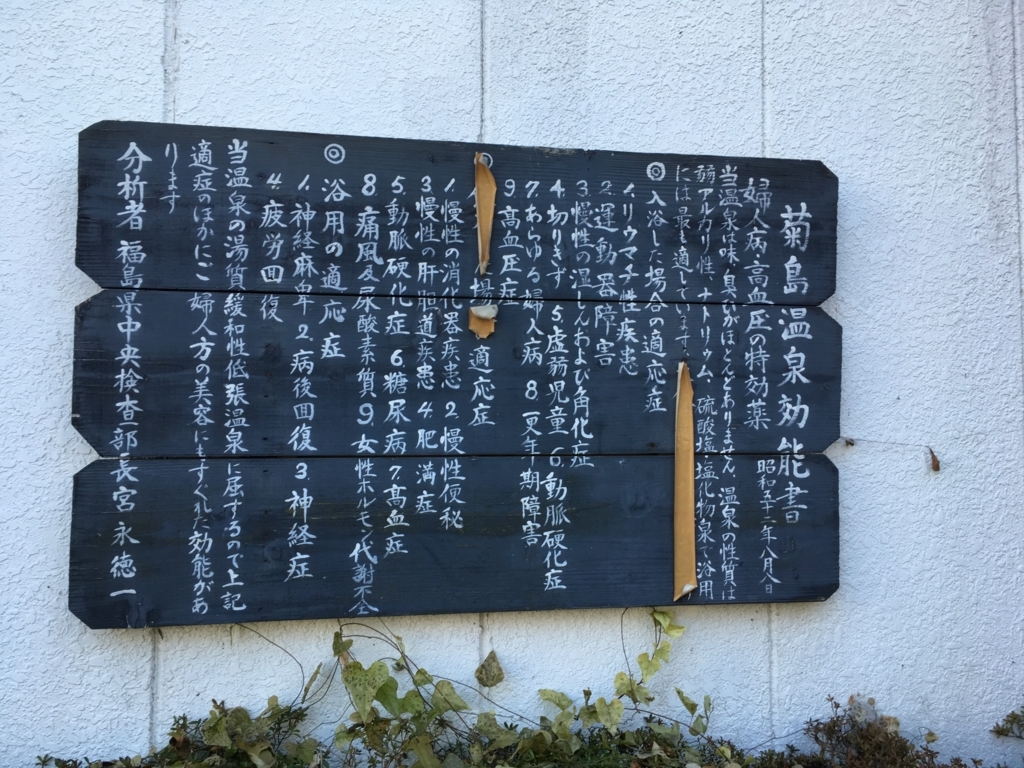 菊島温泉効能書
婦人病・高血圧の特効薬
昭和五十二年八月八日
当温泉は味、臭いがほとんどありません 温泉の性質は
弱アルカリ性、ナトリウム、硫酸塩塩化物泉で、浴用
には最も適しています。
◎入浴した場合の適応症
1.リウマチ性疾患
2.運動器障害
3.慢性の湿しんおよび角化症
4.切りきず 5.虚弱児童 6.動脈硬化症
7.あらゆる婦人病 8.更年期障害
9.高血圧症
◎ 場 適応症
1.慢性の消化器疾患 2.慢性便秘
3.慢性の肝胆道疾患 4.肥満症
5.動脈硬化症 6.糖尿病 7.高血症
8 痛風及尿酸素質 9.女性ホルモン代謝不全
◎
浴用の適応症
1.神経麻卑 2.病後回復 3.神経症
4.疲労回復
当温泉の湯質緩和性低張温泉に属するので上記
適症のほかにご婦人方の美容にもすぐれた効能があ
ります
分析者 福島県中央検査部長宮永徳一